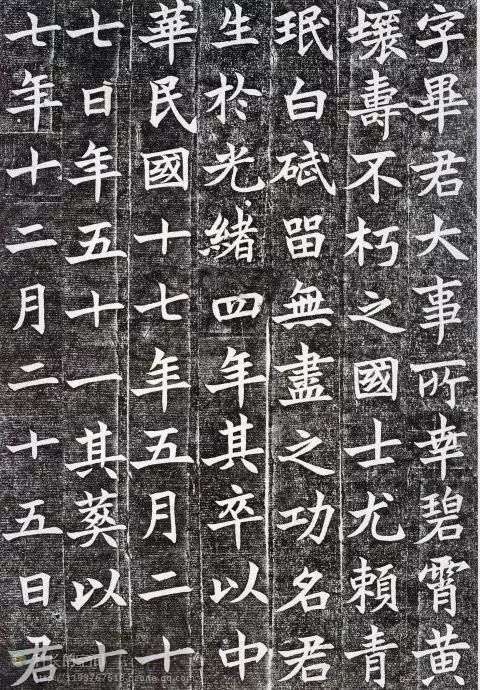 字畢君大事所幸碧霄黃
壤壽不朽之國士尤賴青
珉白砥留無盡之功名君
生於光緒四年其卒以中
華民國十七年五月二十
七日年五十一其葬以十
七年十二月二十五日君
http://1193767518.qzone.qq.com